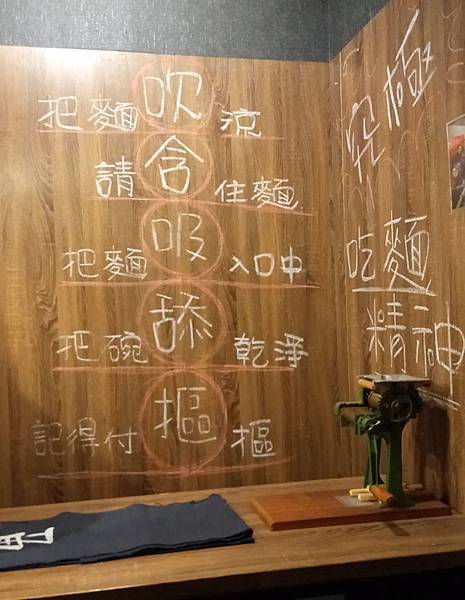 把麵吹涼
請含住麵
把麵吸入口中
把碗舔乾淨
記得付摳摳
究極
吃麵
精神